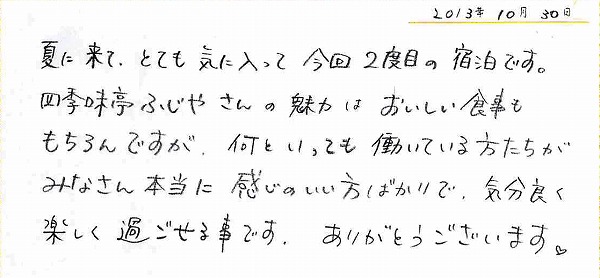 2013年 10月 30日
夏に来て、とても気に入って今回2度目の宿泊です。
四季味亭ふじやさんの魅力はおいしい食事も
もちろんですが、何といっても働いている方たちが
みなさん本当に感じのいい方ばかりで、気分良く
楽しく過ごせる事です。ありがとうございます♡